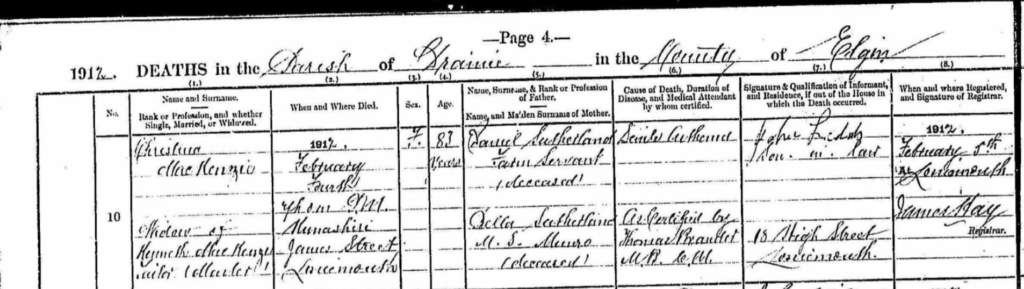 —Page 4.—
1912. DEATHS in the Parish of Drainie in the County of Elgin
(1.) (2.) (3.) (4.) (5.) (6.) (7.) (8.)
No.
Name and Surname.
Rank or Profession, and whether Single, Married, or Widowed.
When and Where Died.
Sex.
Age.
Name, Surname, & Rank or Profession of Father.
Name, and Maiden Surname of Mother.
Cause of Death, Duration of Disease, and Medical Attendant by whom certified.
Signature & Qualification of Informant, and Residence, if out of the House in which the Death occurred.
When and where Registered, and Signature of Registrar.
10
Christina
MacKenzie
Widow of
Kenneth MacKenzie
Tailor (Master)
1912.
February
P.M.
James Street
Lossiemouth
F.
83
Years
Daniel Sutherland
Farm Servant
(deceased)
Bella Sutherland
M.S. Munro
(deceased)
Senile
As Certified by
Thomas Brander
M.B. C.M.
John
Son-in-law
18 High Street
Lossiemouth.
1912.
February 5th
At Lossiemouth
James Hay
Registrar.